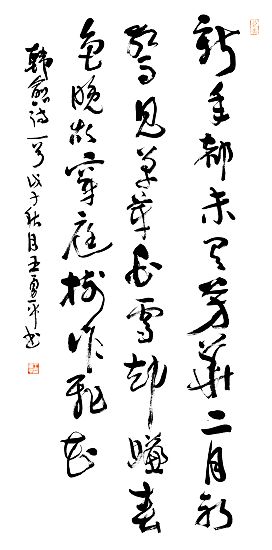 新年都未有芳華二月初
驚見草芽白雪却嫌春
色晚故穿庭樹作飛花
韓愈詩一首戊子秋月王勇平书